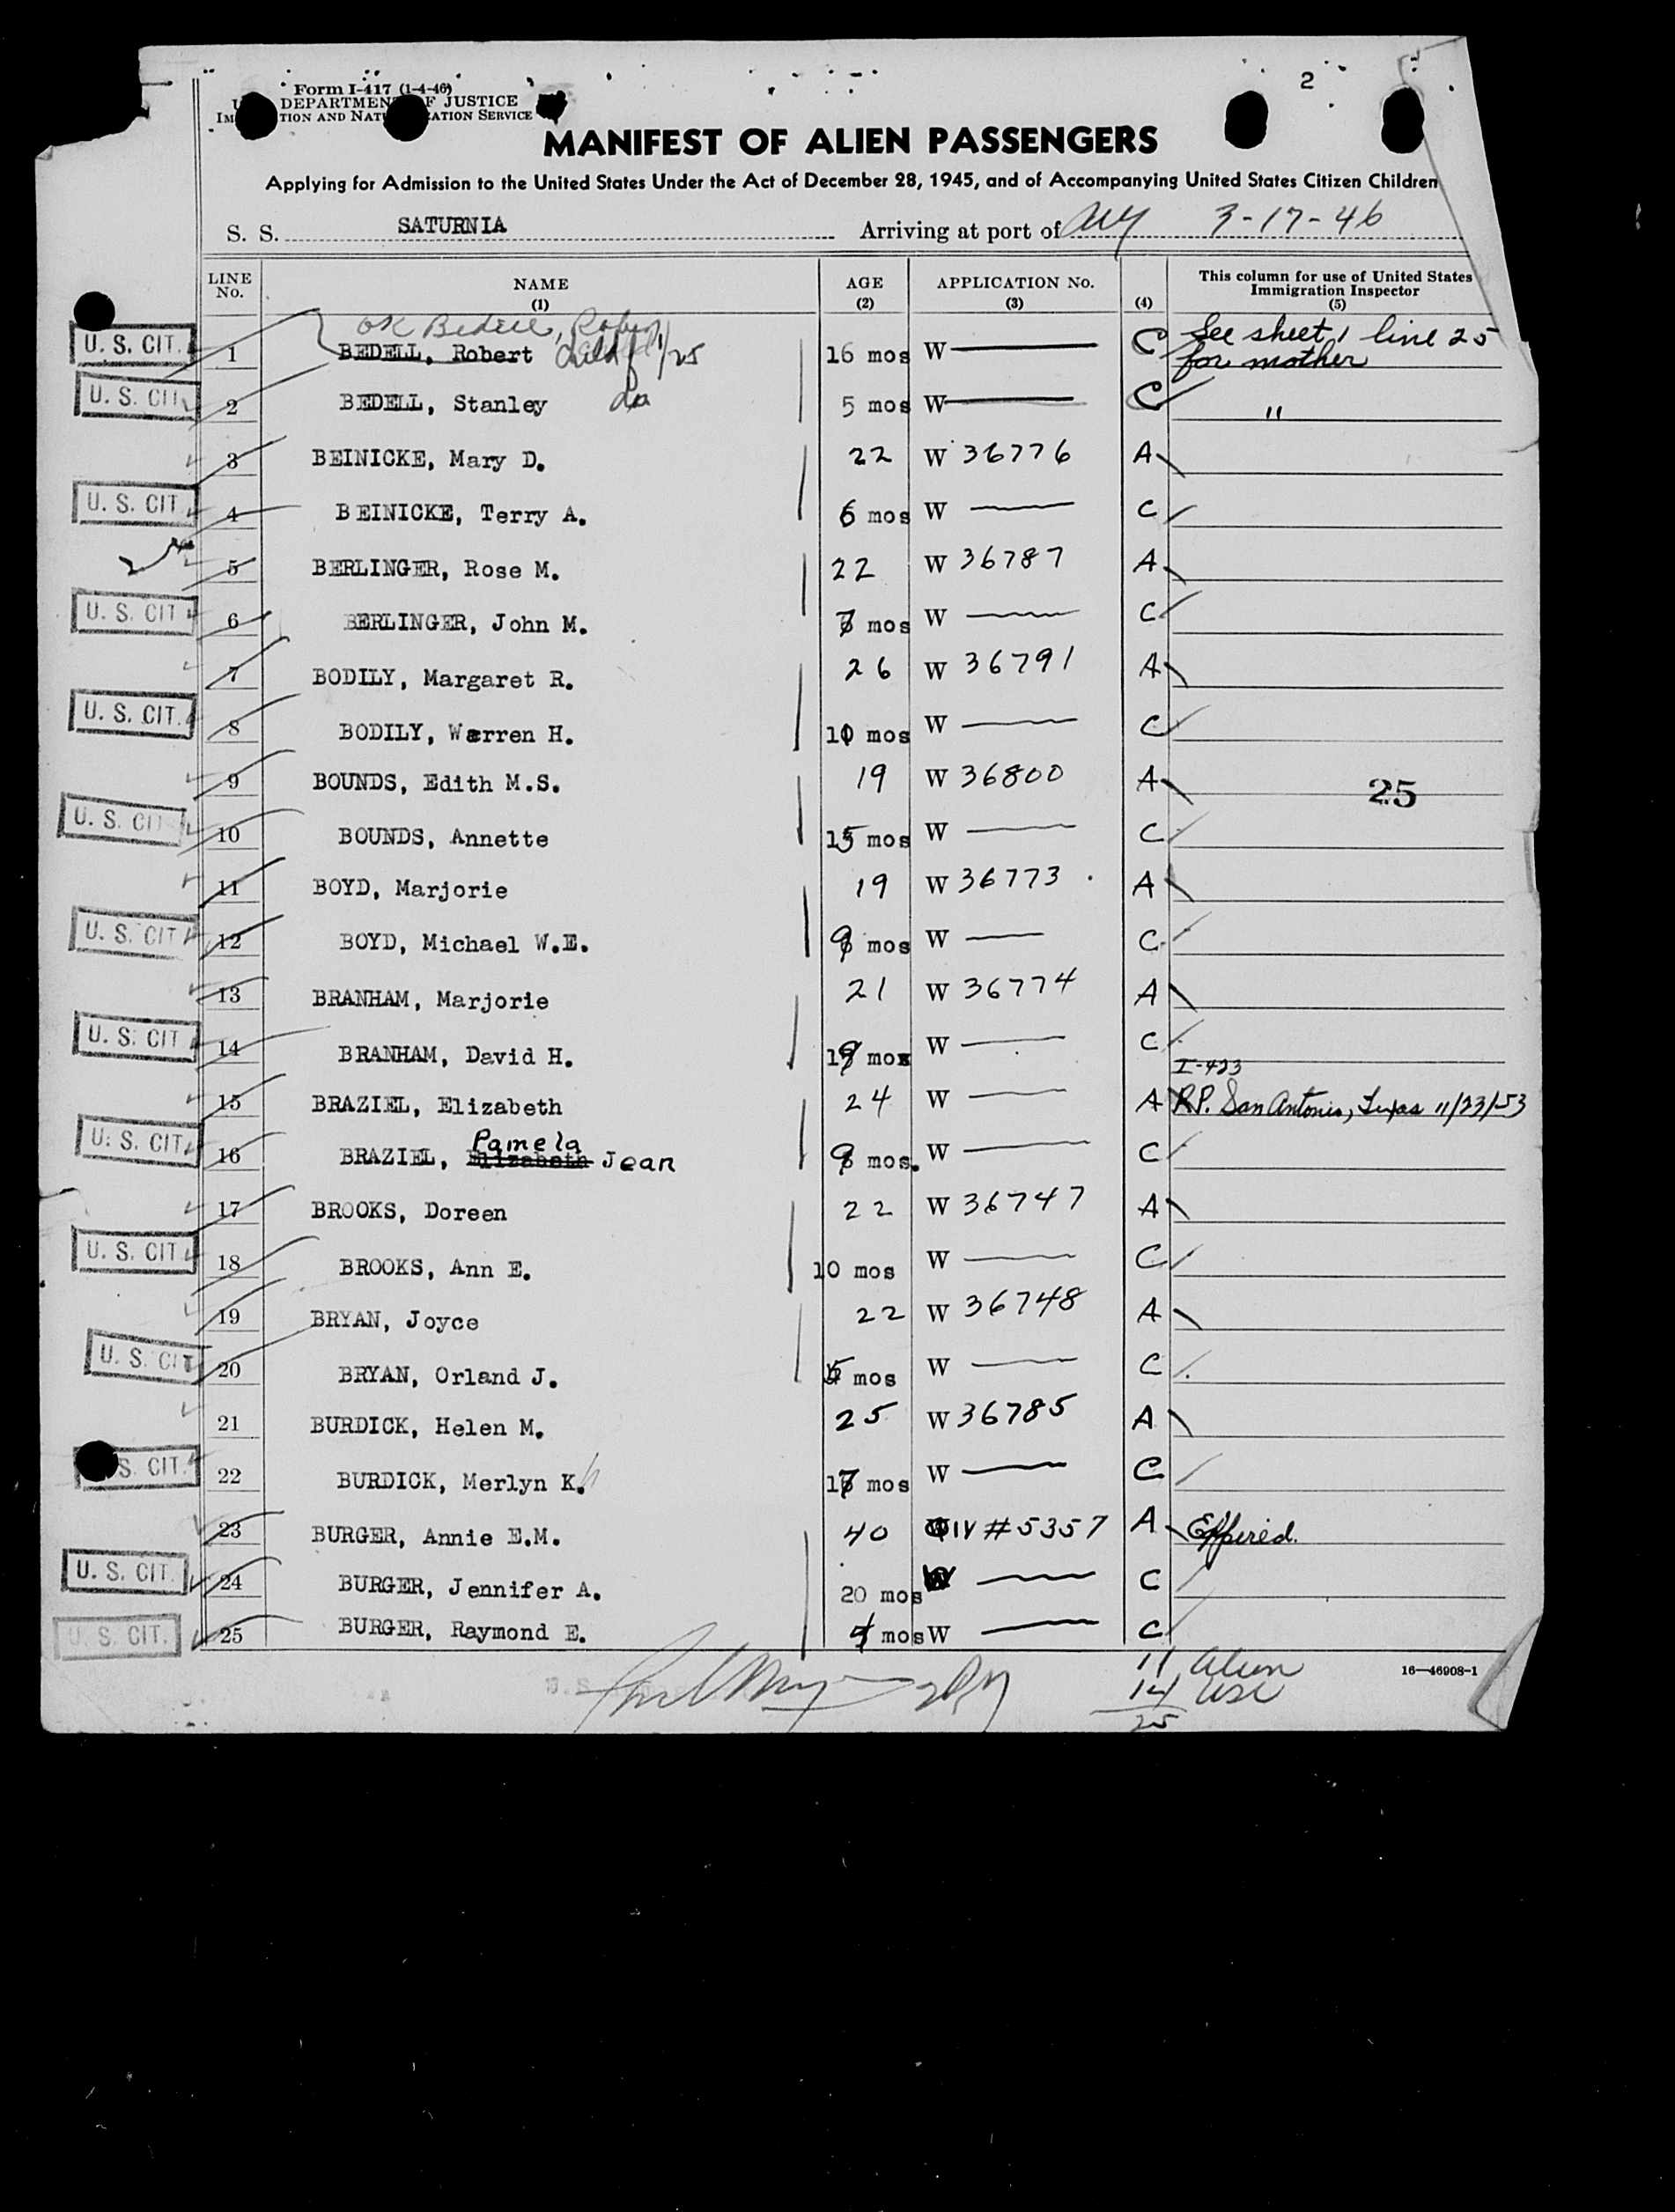 2
Form I-417 (1-4-46)
DEPARTMENT OF JUSTICE
IMMIGRATION AND NATURALIZATION SERVICE
MANIFEST OF ALIEN PASSENGERS
Applying for Admission to the United States Under the Act of December 28, 1945, and of Accompanying United States Citizen Children
S. S. SATURNIA Arriving at port of 3-17-46
LINE No. NAME (1) AGE (2) APPLICATION No. (3) (4) This column for use of United States Immigration Inspector (5)
OK Bedell, Robin
U. S. CIT. 1 BEDELL, Robert child of 1/25 16 mos W C See sheet 1 line 25 for mother
U. S. CIT. 2 BEDELL, Stanley do 5 mos W C "
3 BEINICKE, Mary D. 22 W 36776 A
U. S. CIT. 4 BEINICKE, Terry A. 6 mos W C
5 BERLINGER, Rose M. 22 W 36787 A
U. S. CIT. 6 BERLINGER, John M. 7 mos W C
7 BODILY, Margaret R. 26 W 36791 A
U. S. CIT. 8 BODILY, Warren H. 10 mos W C
9 BOUNDS, Edith M.S. 19 W 36800 A 25
U. S. CIT. 10 BOUNDS, Annette 15 mos W C
11 BOYD, Marjorie 19 W 36773 A
U. S. CIT. 12 BOYD, Michael W.E. 9 mos W C
13 BRANHAM, Marjorie 21 W 36774 A
U. S. CIT. 14 BRANHAM, David H. 19 mos W C
I-423
15 BRAZIEL, Elizabeth 24 W A R.P. San Antonio, Texas 11/23/53
U. S. CIT. 16 BRAZIEL, Elizabeth Pamela Jean 9 mos. W C
17 BROOKS, Doreen 22 W 36747 A
U. S. CIT. 18 BROOKS, Ann E. 10 mos W C
19 BRYAN, Joyce 22 W 36748 A
U. S. CIT 20 BRYAN, Orland J. 5 mos W C
21 BURDICK, Helen M. 25 W 36785 A
S. CIT. 22 BURDICK, Merlyn K. 17 mos W C
23 BURGER, Annie E.M. 40 QIV #5357 A Expired.
U. S. CIT. 24 BURGER, Jennifer A. 20 mos W C
U. S. CIT. 25 BURGER, Raymond E. mos W C
11 alien
14 USC
25
16—46908-1